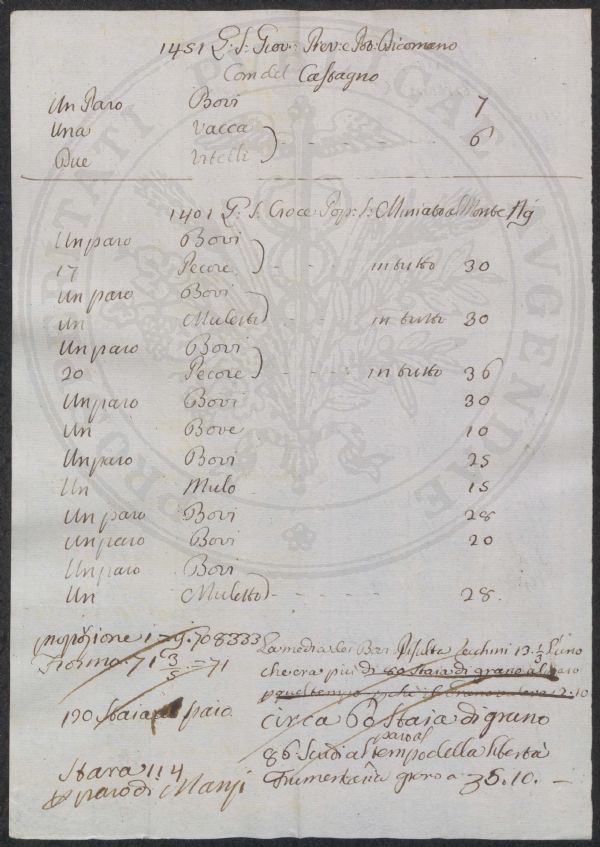 1451 G: S: Giov: Prev: e Pot: Dicomano
Com del Castagno
Un Paro Bovi 7
Una Vacca
Due Vitelli 6
1401 G: S: Croce Pop: S: Miniato al Monte
Un paro Bovi
17 Pecore in tutto 30
Un paro Bovi
Un Muletto in tutto 30
Un paro Bovi
20 Pecore in tutto 36
Un paro Bovi 30
Un Bove 10
Un paro Bovi 25
Un Mulo 15
Un paro Bovi 28
Un paro Bovi 20
Un paro Bovi
Un Muletto 28.
1 - 79.708333
71 3/5 = 71
190 Staia paio
Stara 114
paro di Manzi
La media dei Bovi Risulta Zecchini 13 1/3 l'uno
che era più di 80 Staia di grano al paro
quel tempo
circa 60 Staia di grano
86: Scudi al paro al tempo della libertà
Frumentaria grano a 35.10. -
PROSPERITATI PUBLICAE AVGENDAE